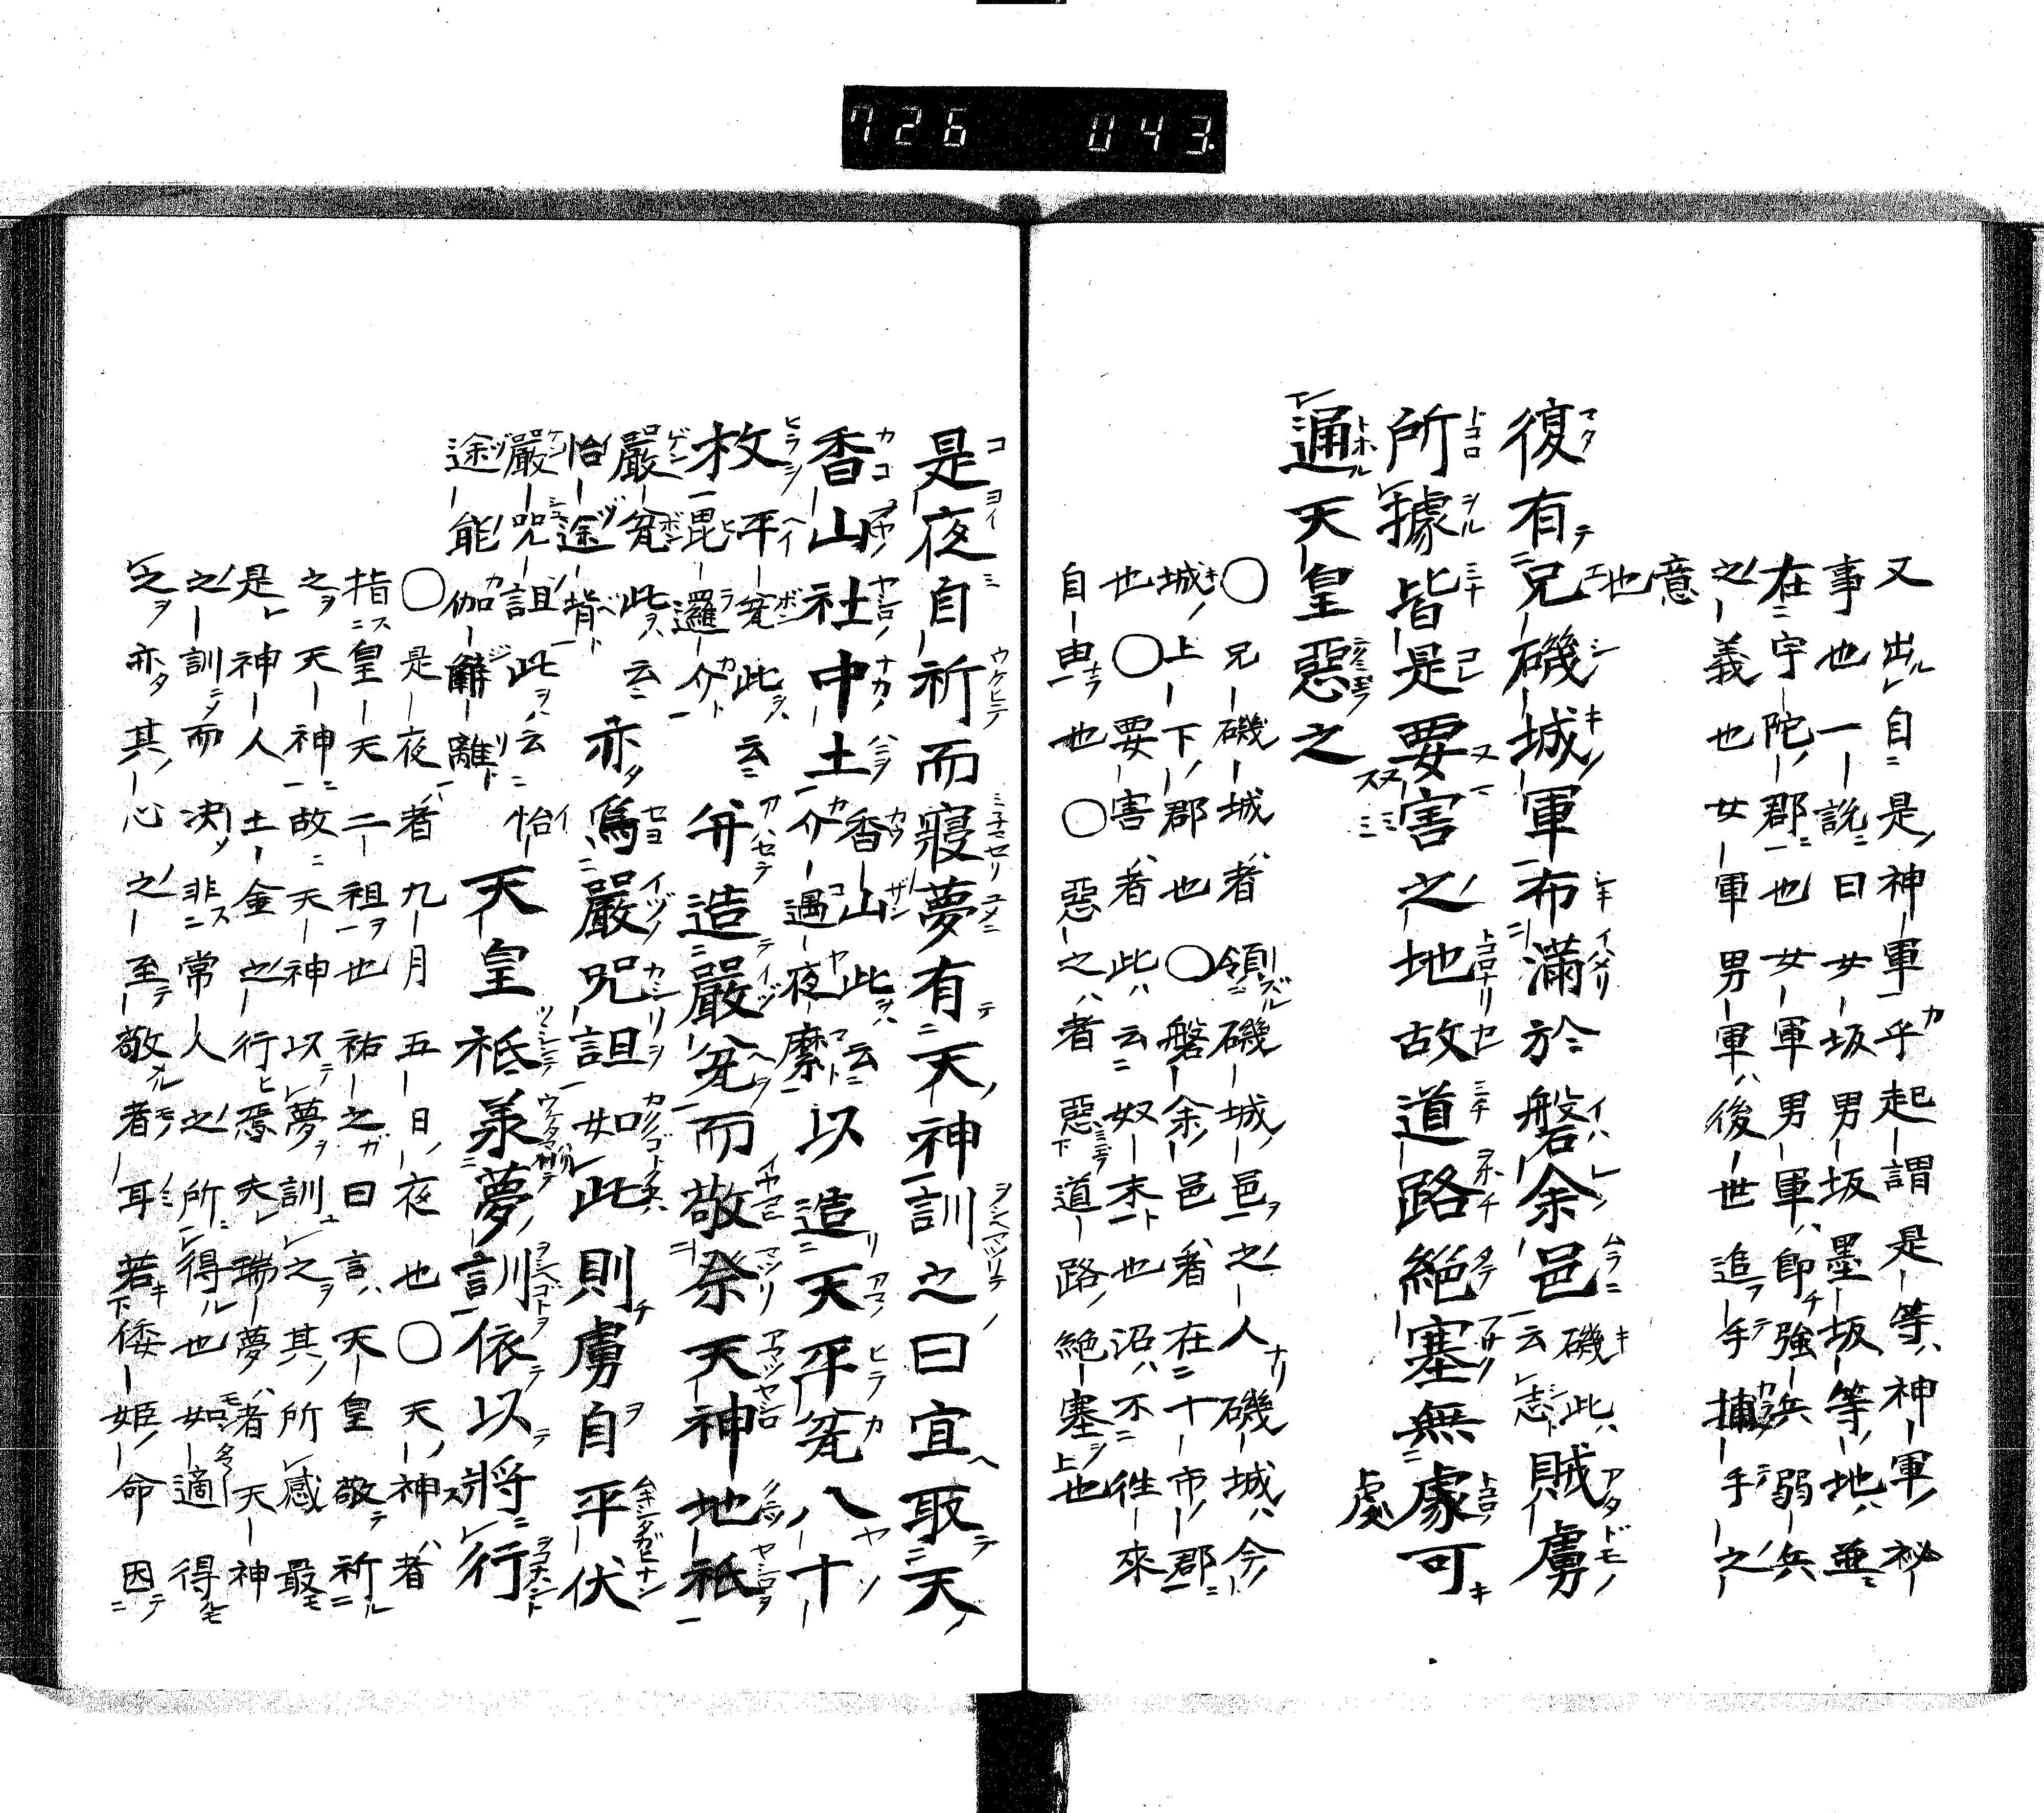 726 043
又出自是神軍乎起謂是等神軍祕
事也一説曰女坂男坂墨坂等地並
在宇陀郡也女軍男軍即強兵弱兵
之義也女軍男軍後世追手搦手之
意也
復有兄磯城軍布滿於磐余邑 磯此云志 賊虜
所據皆是要害之地故道路絶塞無處可
通天皇惡之
〇兄磯城者領磯城邑之人磯城今
城上下郡也〇磐余邑者在十市郡
也〇要害者此云奴末也沼不往來
自由也〇惡之者惡道路絶塞也
是夜自祈而寢夢有天神訓之曰宜取天
香山社中土 香山此云介遇夜麽 以造天平瓫八十
枚 平瓫此云毘邏介 并造嚴瓫而敬祭天神地祇
嚴瓫此云怡途背 亦爲嚴咒詛如此則虜自平伏
嚴咒詛此云怡途能伽辭離 天皇祇承夢訓依以將行
〇是夜者九月五日夜也〇天神者
指皇天二祖也祐之曰言天皇敬祈
之天神故天神以夢訓之其所感最
是神人土金之行焉夫瑞夢者天神
之訓而決非常人之所得也如適得
之亦其心之至敬者耳若倭姫命因